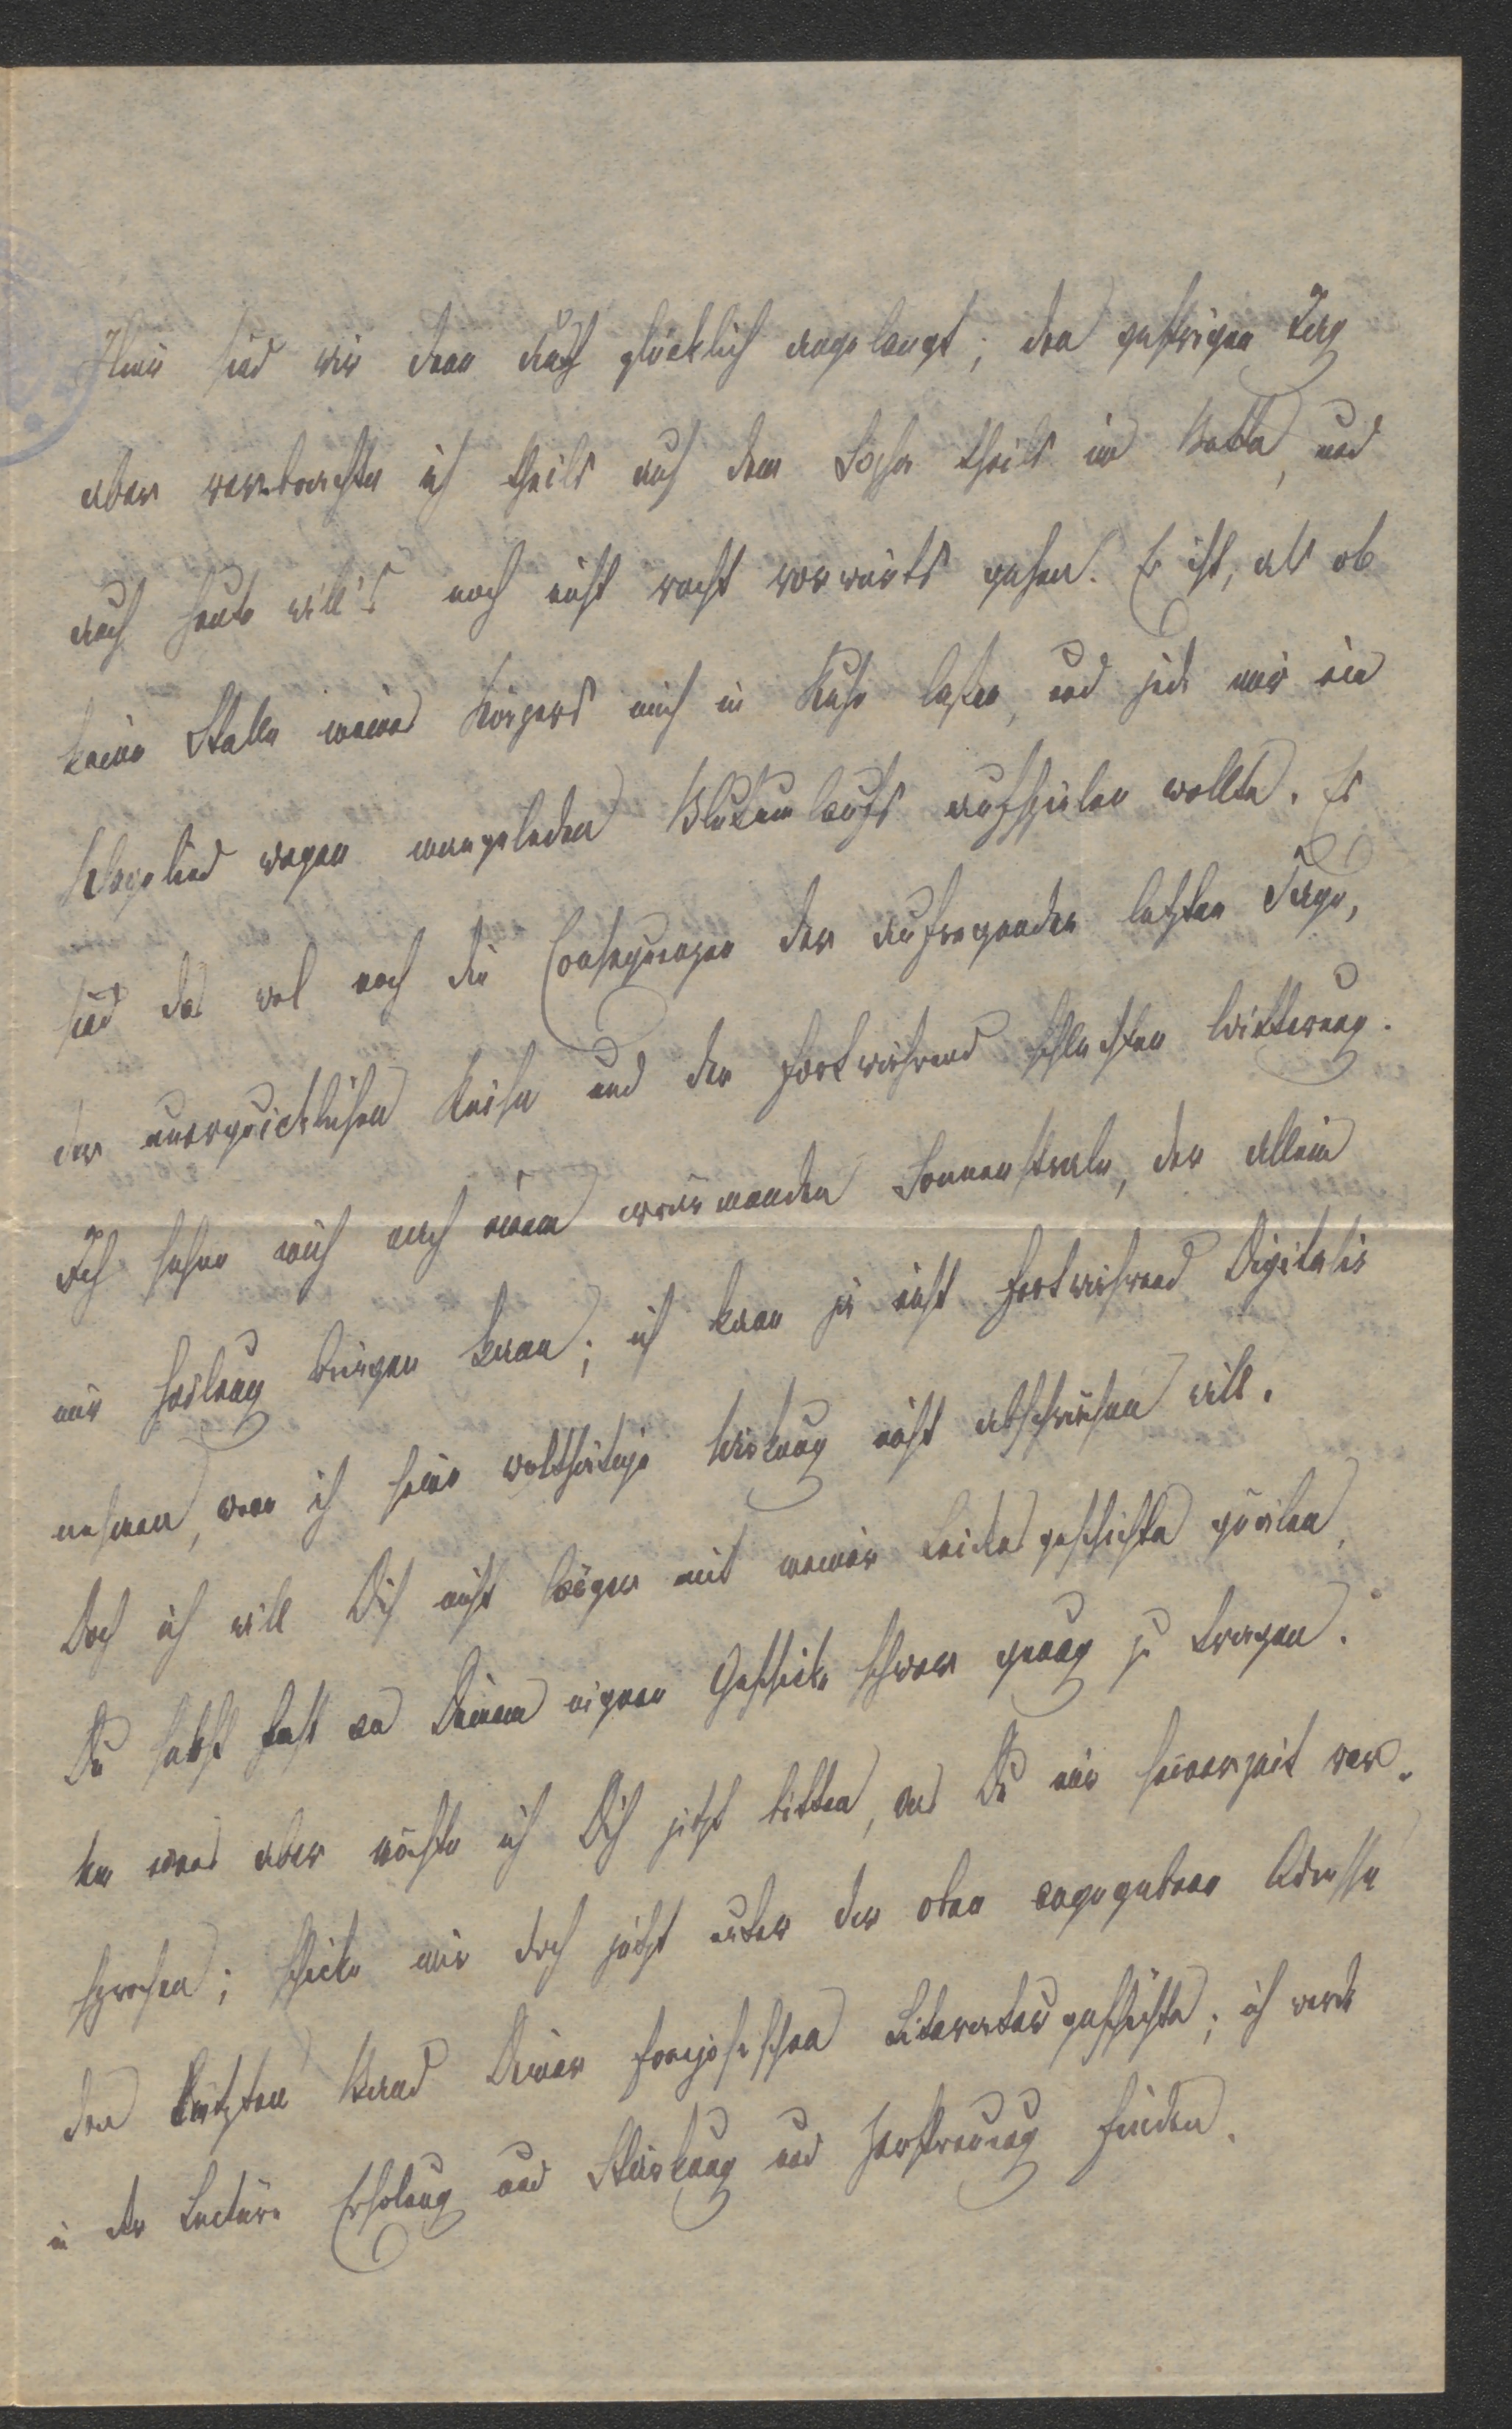 Hier sind wir denn auch glücklich angelangt; den gestrigen Tag
aber verbrachte ich theils auf dem Sopha theils im Bette, und
auch heute will's noch nicht recht vorwärts gehen. Es ist, als ob
keine Stelle meines Körpers mich in Ruhe lassen, und jede mir ein
Klagelied wegen mangelnden Blutumlaufs aufspielen wollte. Es
sind das wol noch die Consequenzen der aufregenden letzten Tage,
der unerquicklichen Reise und der fortwährend schlechten Witterung.
Ich sehne mich nach einem wärmenden Sonnenstrale, der allein
mir Heilung bringen kann; ich kann ja nicht fortwährend Digitalis
nehmen, wenn ich seine wolthätige Wirkung nicht abschwächen will.
Doch ich will Dich nicht länger mit meiner Leidensgeschichte quälen,
Du hast fast an Deinem eignen Geschicke schwer genug zu tragen.
Um was aber möchte ich Dich jetzt bitten, was Du mir seinerzeit ver-
sprochen; schicke mir doch jetzt unter der oben angegebenen Adresse
den letzten Band Deiner französischen Literaturgeschichte; ich werde
in der Lectüre Erholung und Stärkung und Zerstreuung finden.